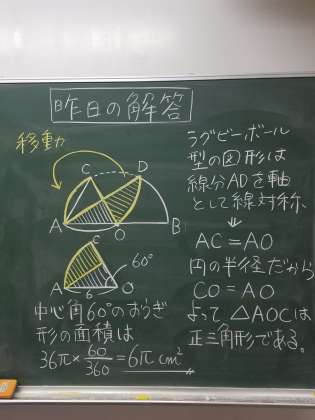 昨日の解答
移動
C
D
A
O
B
C
60°
A
6
O
中心角60°のおうぎ
形の面積は
36π×60/360=6π cm²
ラグビーボール
型の図形は
線分ADを軸
として線対称。
⇓
AC=AO
円の半径だから
CO=AO
よって△AOCは
正三角形である。